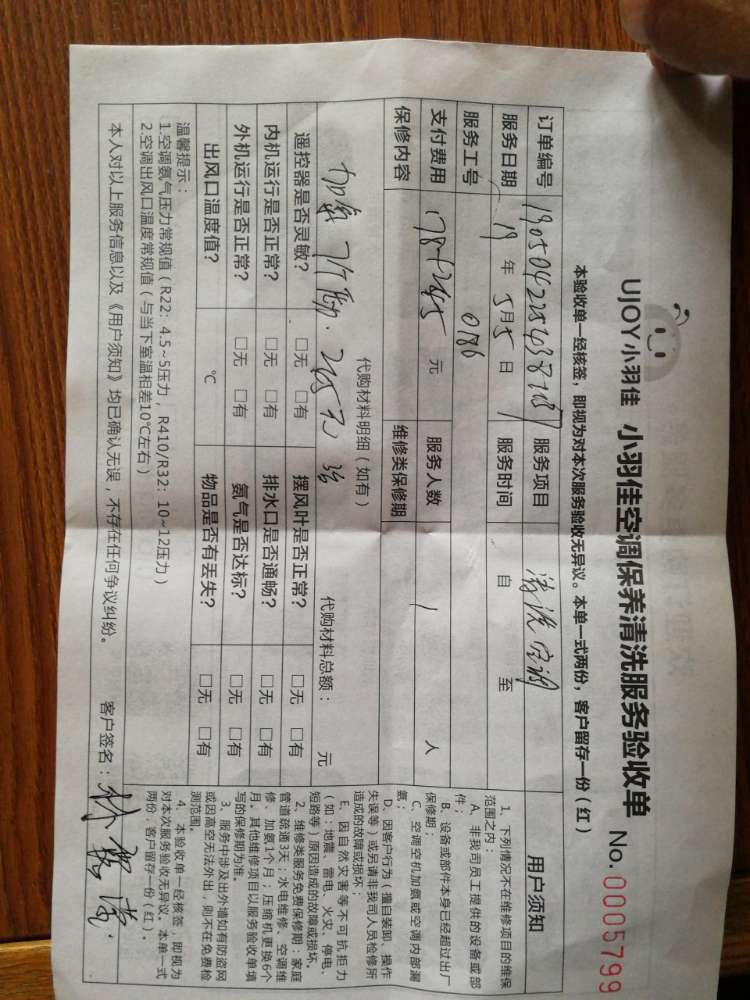 UJOY小羽佳 小羽佳空调保养清洗服务验收单 No.0005799
本验收单一经核签，即视为对本次服务验收无异议。本单一式两份，客户留存一份（红）
订单编号 服务项目 清洗空调 用户须知
服务日期 19 年 5 月 5 日 服务时间 自 至
服务工号 0186
支付费用 元 服务人数 1 人
保修内容 维修类保修期
代购材料明细（如有） 代购材料总额： 元
加氨 245元
遥控器是否灵敏？ □无 □有 摆风叶是否正常？ □无 □有
内机运行是否正常？ □无 □有 排水口是否通畅？ □无 □有
外机运行是否正常？ □无 □有 氨气是否达标？ □无 □有
出风口温度值？ ℃ 物品是否有丢失？ □无 □有
1、下列情况不在维修项目的维保
范围之内：
A、非我司员工提供的设备或部
件；
B、设备或部件本身已经超过出厂
保修期；
C、空调空机加氨或空调内部漏
氨；
D、因客户行为（擅自装卸、操作
失误等）或另请非我司人员检修所
造成的故障或损坏；
E、因自然灾害等不可抗拒力
（如：地震、雷电、火灾、停电、
短路等）原因造成的故障或损坏。
2、维修类服务免费保修期：家庭
管道疏通3天；水电维修、空调维
修、加氨1个月；压缩机更换6个
月，其他维修项目以服务验收单填
写的保修期为准。
3、服务中涉及出外墙如有防盗网
或因高空无法外出，则不在免费检
测范围。
4、本验收单一经核签，即视为
对本次服务验收无异议。本单一式
两份，客户留存一份（红）。
温馨提示：
1.空调氨气压力常规值（R22：4.5~5压力，R410/R32：10~12压力）
2.空调出风口温度常规值（与当下室温相差10℃左右）
本人对以上服务信息以及《用户须知》均已确认无误，不存在任何争议纠纷。 客户签名：